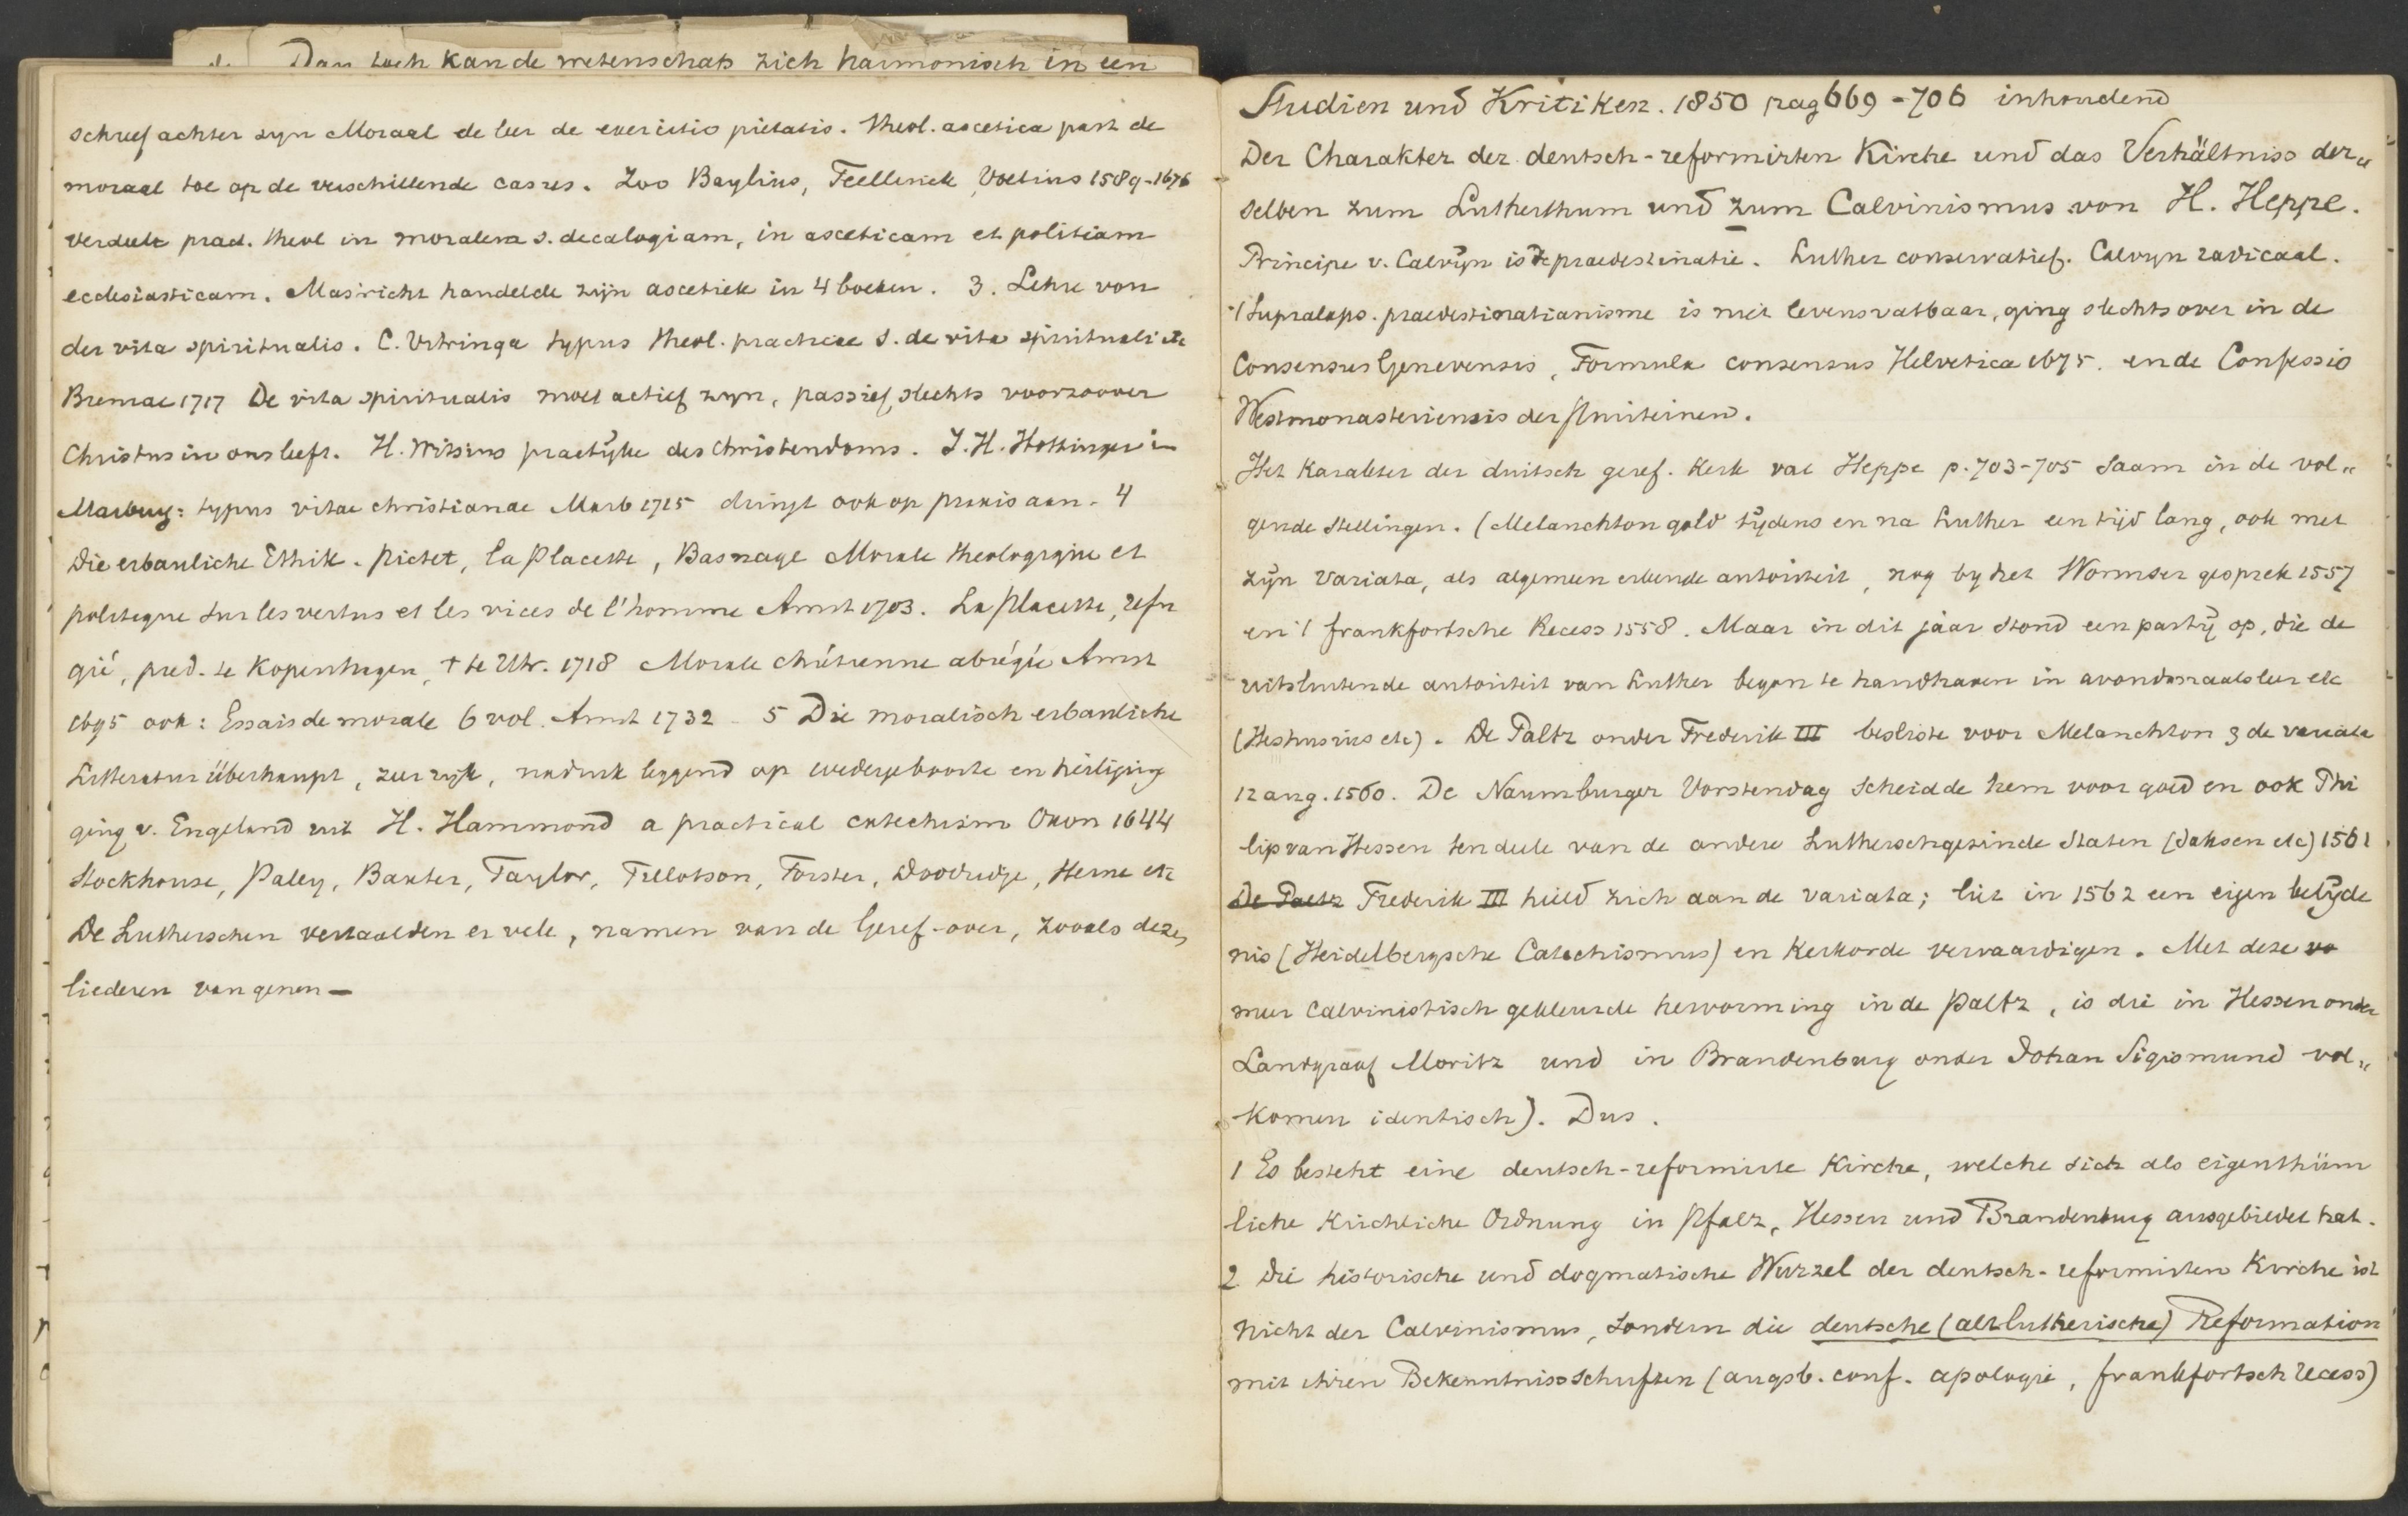 Dan toch kan de wetenschap zich harmonisch in een
schreef achter zyn Moraal de leer de exercitio pietatis. Theol. ascetica past de
moraal toe op de verschillende casus. Zoo Baylius, Teellinck, Voetius 1589-1676
verdeelt pract. theol in moralem s. decalogiam, in asceticam et politiam
ecclesiasticam. Mastricht handelde zijn ascetiek in 4 boeken. 3. Lehre von
der vita spiritualis. C. Vitringa typus theol. practicae s. de vita spirituali etc
Bremae 1717 De vita spiritualis moet actief zyn, passief slechts voorzoover
Christus in ons leeft. H. Witsius practijke des Christendoms. J. H. Hottinger in
Marburg: typus vitae christianae Marb 1715 dringt ook op praxis aan. 4
Die erbauliche Ethik. Pictet, la Placette, Basnage Morale theologique et
politique sur les vertus et les vices de l'homme Amst 1703. La Placette, refu
gié, pred. te Kopenhagen, † te Utr. 1718 Morale chrétienne abrégée Amst
1695 ook: Essais de morale 6 vol. Amst 1732 - 5 Die moralisch erbauliche
Litteratur überhaupt, zeer rijk, nadruk leggend op wedergeboorte en heiliging
ging v. Engeland uit H. Hammond a practical catechism Oxon 1644
Stockhouse, Paley, Baxter, Taylor, Tillotson, Forster, Doodridge, Herne etc
De Lutherschen vertaalden er vele, namen van de Geref. over, zooals deze,
liederen van genen —
Studien und Kritiken. 1850 pag 669-706 inhoudend
Der Charakter der deutsch-reformirten Kirche und das Verhältniss der„
selben zum Lutherthum und zum Calvinismus von H. Heppe.
Principe v. Calvijn is de praedestinatie. Luther conservatief. Calvyn radicaal.
't Supralaps. praedestinatianisme is niet levensvatbaar, ging slechts over in de
Consensus Genevensis, Formula consensus Helvetica 1675. en de Confessio
Westmonasteriensis der Puriteinen.
Het karakter der duitsch geref. kerk vat Heppe p. 703-705 saam in de vol„
gende stellingen. (Melanchton gold tijdens en na Luther een tijd lang, ook met
zijn Variata, als algemeen erkende autoriteit, nog by het Wormser gesprek 1557
en 't frankfortsche Recess 1558. Maar in dit jaar stond een partij op, die de
uitsluitende autoriteit van Luther begon te handhaven in avondmaalsleer etc
(Heshusius etc). De Paltz onder Frederik III besliste voor Melanchton & de variata
12 aug. 1560. De Naumburger Vorstendag scheidde hem voor goed en ook Phi
lip van Hessen ten deele van de andere Lutherschgezinde Staten (Saksen etc) 1561
De Paltz Frederik III hield zich aan de variata; liet in 1562 een eigen belijde
nis (Heidelbergsche Catechismus) en kerkorde vervaardigen. Met deze vo
meer Calvinistisch gekleurde hervorming in de Paltz, is die in Hessen onder
Landgraaf Moritz und in Brandenburg onder Johan Sigismund vol„
komen identisch). Dus.
1 Es besteht eine deutsch-reformirte Kirche, welche sich als eigenthüm
liche kirchliche Ordnung in Pfalz, Hessen und Brandenburg ausgebildet hat.
2 Die historische und dogmatische Wurzel der deutsch-reformirten Kirche ist
nicht der Calvinismus, sondern die deutsche (altlutherische) Reformation
mit ihren Bekenntnissschriften (augsb. conf. apologie, frankfortsch recess)